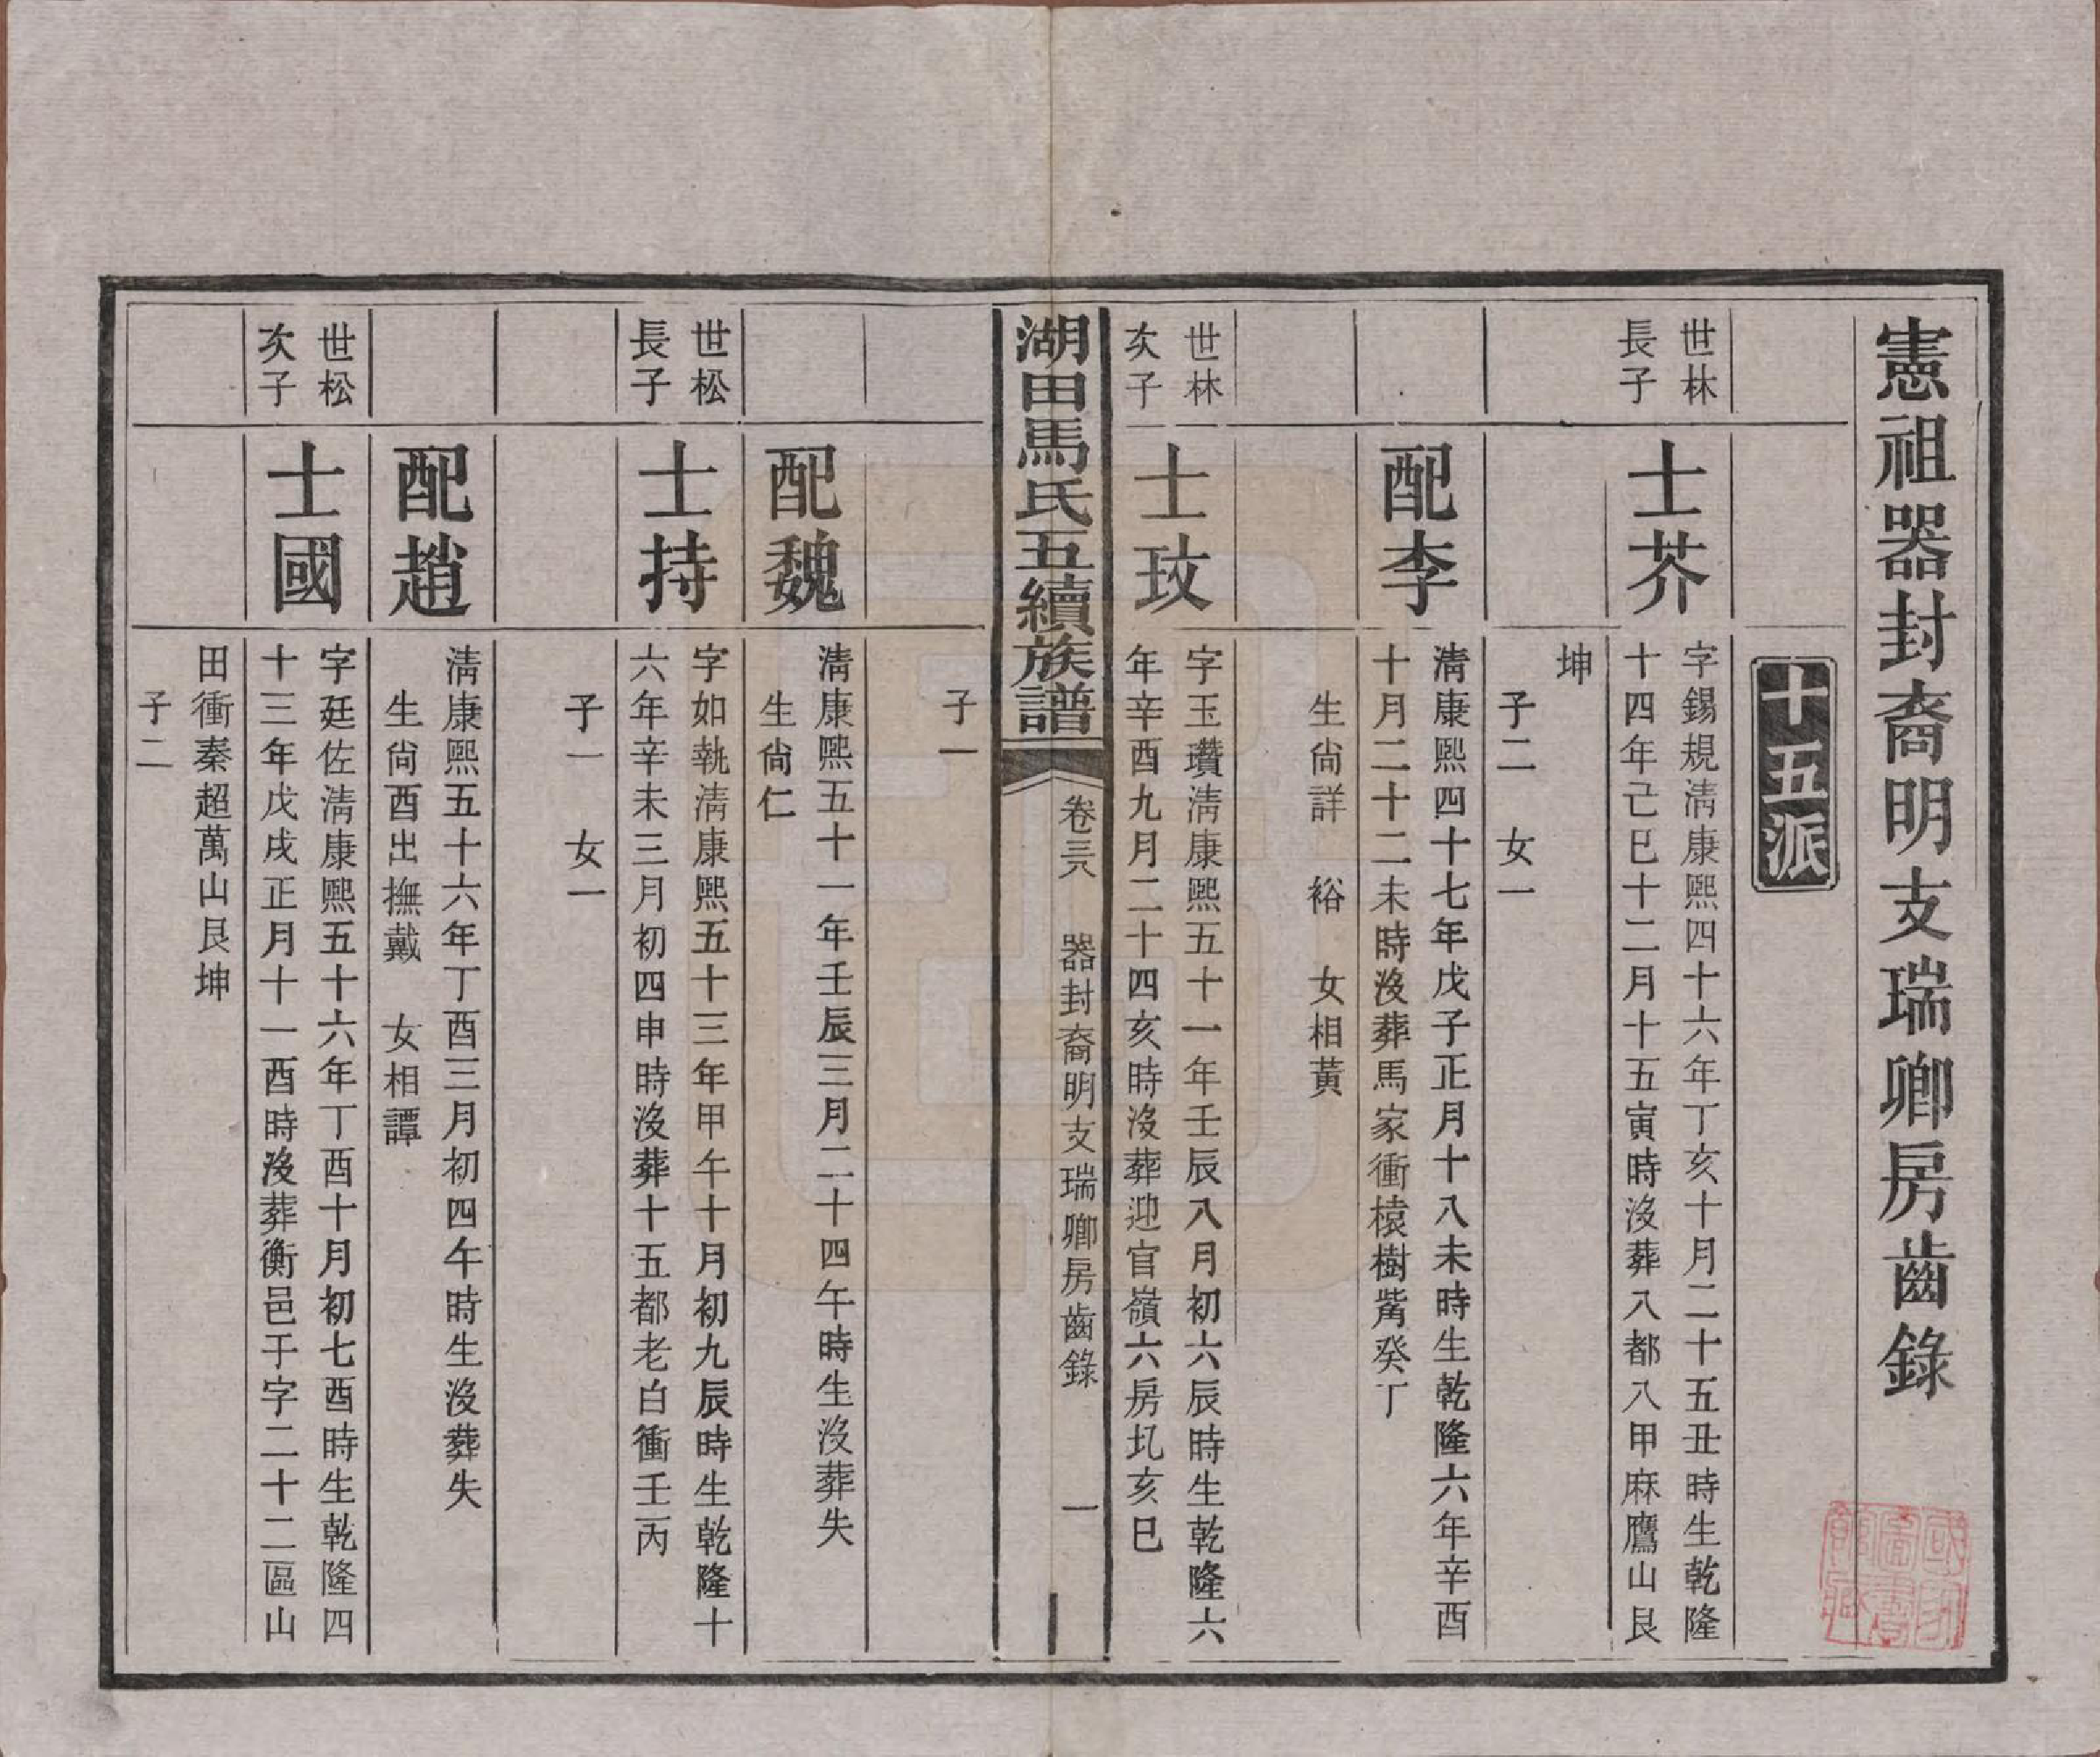 憲祖器封裔明支瑞卿房齒錄
十五派
世林
長子
士芥
字錫規淸康熙四十六年丁亥十月二十五丑時生乾隆
十四年己巳十二月十五寅時沒葬八都八甲麻鷹山艮
坤
子二　女一
配李
淸康熙四十七年戊子正月十八未時生乾隆六年辛酉
十月二十二未時沒葬馬家衝榬樹觜癸丁
生尙詳　裕　女相黃
世林
次子
士玟
字玉瓚淸康熙五十一年壬辰八月初六辰時生乾隆六
年辛酉九月二十四亥時沒葬迎官嶺六房圠亥巳
湖田馬氏五續族譜
卷三六　器封裔明支瑞卿房齒錄　一
子一
配魏
淸康熙五十一年壬辰三月二十四午時生沒葬失
生尙仁
世松
長子
士持
字如執淸康熙五十三年甲午十月初九辰時生乾隆十
六年辛未三月初四申時沒葬十五都老白衝壬丙
子一　女一
配趙
淸康熙五十六年丁酉三月初四午時生沒葬失
生尙酉出撫戴　女相譚
世松
次子
士國
字廷佐淸康熙五十六年丁酉十月初七酉時生乾隆四
十三年戊戌正月十一酉時沒葬衡邑于字二十二區山
田衝秦超萬山艮坤
子二